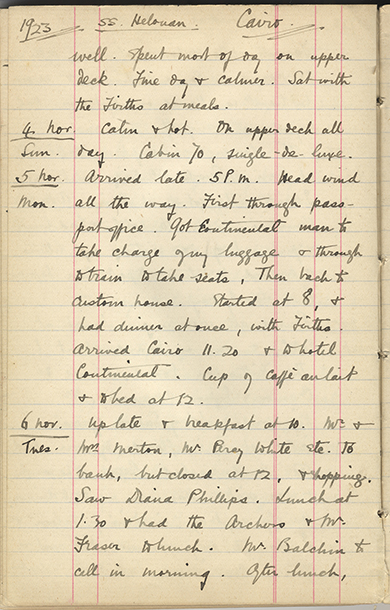 1923 ss. Helouan. Cairo.
well. Spent most of day on upper
deck. Fine day & calmer. Sat with
the Firths at meals.
4 Nov. Calm & hot. On upper deck all
Sun. day. Cabin 70, single-de-luxe.
5 Nov. Arrived late. 5 P.M. Head wind
Mon. all the way. First through pass-
port office. Got Continental man to
take charge of my luggage & through
to train to take seats, Then back to
custom house. Started at 8, &
had dinner at once, with Firths.
Arrived Cairo 11.20 & to hotel
Continental. Cup of caffè au lait
& to bed at 12.
6 Nov. Up late & breakfast at 10. Mr. &
Tues. Mrs Merton, Mr. Percy White etc. To
bank, but closed at 12, & shopping.
Saw Diana Phillips. Lunch at
1.30 & had the Archers & Mr.
Fraser to lunch. Mr. Balchin to
call in morning. After lunch,